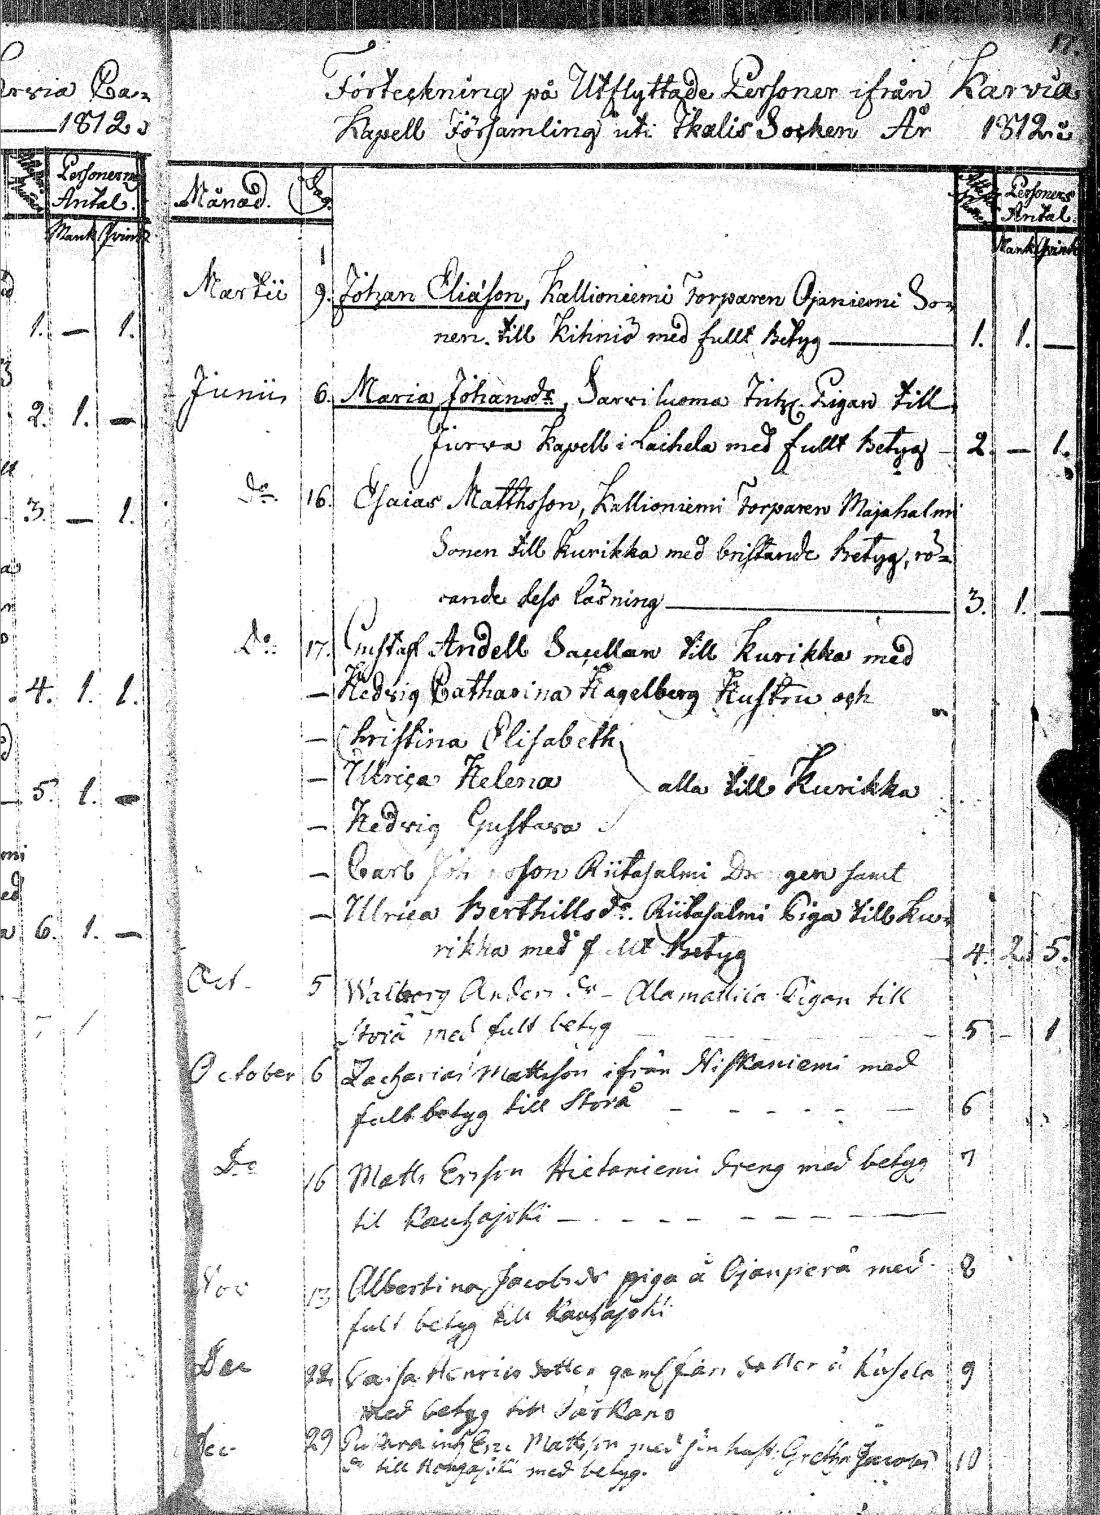 Karvia Ca-
1812.
Personernes
Antal.
Mank Qvink
1. — 1.
2. 1. —
3. — 1.
4. 1. 1.
5. 1. —
6. 1. —
17.
Förteckning på Utflyttade Personer ifrån Karvia
Kapell Församling uti Ikalis Socken År 1812.
Månad. Dag. Personers
Antal.
Mank Qvink
Martii 9. Johan Eliason, Kallioniemi Torparen Ojaniemi So-
nen till Kihniö med fullt Betyg — 1. 1. —
Junii 6. Maria Johansdr, Sarviluoma Inh. Pigan till
Jurva Kapell i Laihela med fullt Betyg - 2. — 1.
Do 16. Esaias Matthsson, Kallioniemi Torparen Majahalmi
Sonen till Kurikka med bristande Betyg, rö-
rande dess läsning — 3. 1. —
Do 17. Gustaf Andell till Kurikka med
— Hedvig Catharina Hagelberg Hustru och
— Christina Elisabeth
— Ulrica Helena alla till Kurikka
— Hedvig Gustava
— Carl Riitasalmi samt
— Ulrica Berthillsdr. Riitasalmi Piga till Ku-
rikka med Betyg 4. 2. 5.
Oct. 5 Walborg Anders dr - Alamattila Pigan till
Storå med fult betyg — 5 - 1
October 6 Zacharias Mattsson ifrån Niskaniemi med
fult betyg till Storå - - - - - 6
Do 16 Matts Ersson Hietaniemi dreng med betyg 7
til Kauhajoki - - - - - -
Nov 13 Albertina Jacobsdr piga å Ojanperä med 8
fult betyg till Kauhajoki
Dec 22 Caisa Henrics dotter dotter å 9
med betyg till Parkano
Dec 29 inh Eric Mattsson med sin hust. Gretha Jacobs 10
dr till med betyg.